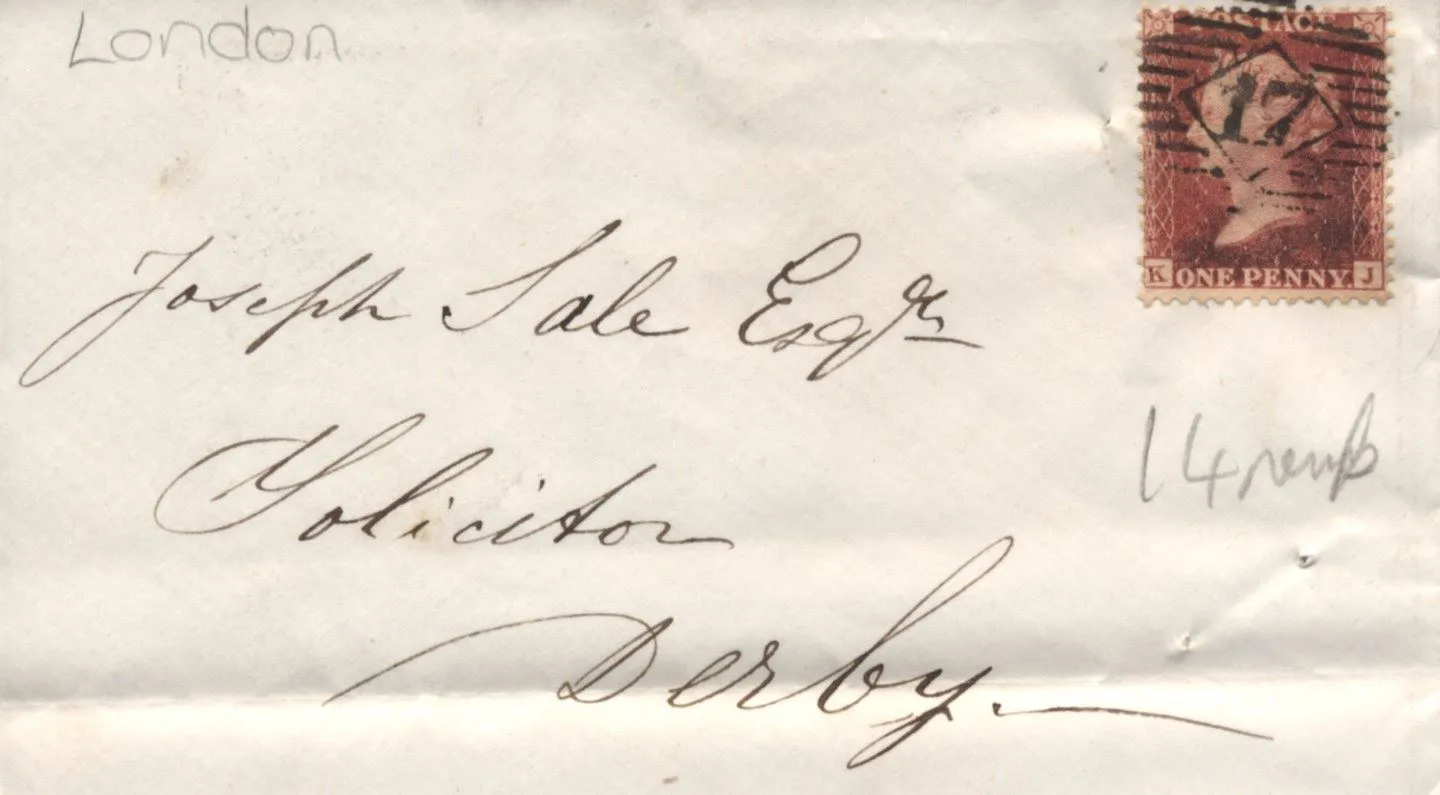 London
POSTAGE
17
K ONE PENNY. J
Joseph Sale Esqr
14 perf
Solicitor
Derby.